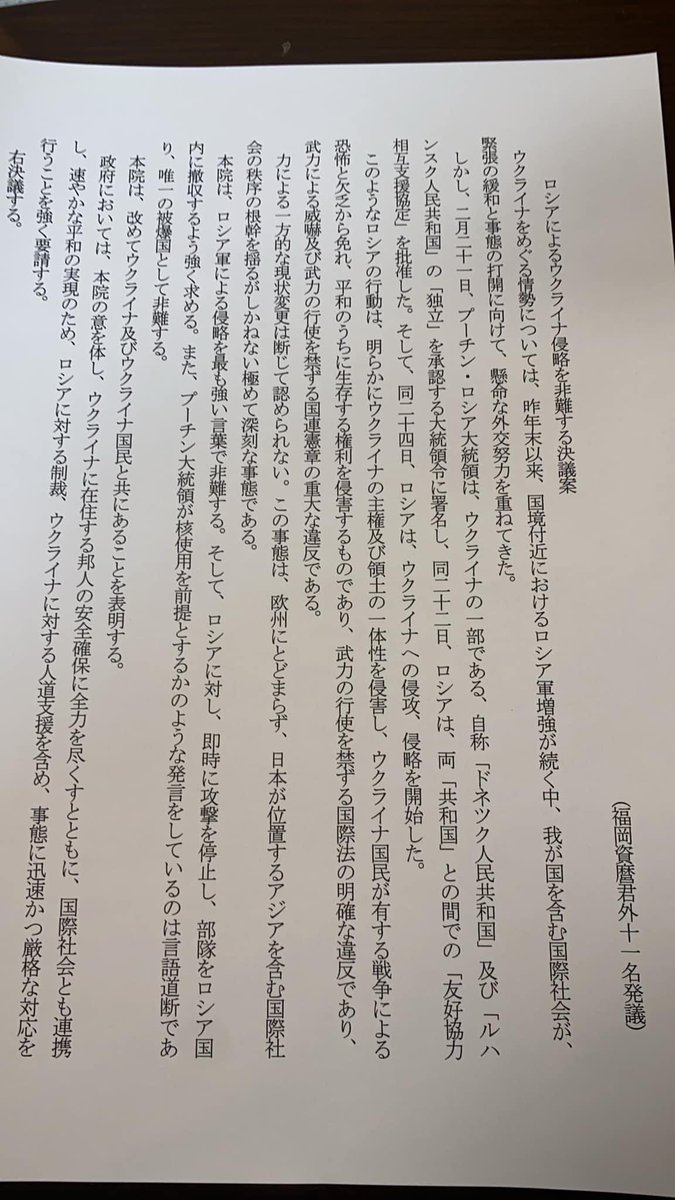 ロシアによるウクライナ侵略を非難する決議案
（福岡資麿君外十一名発議）
ウクライナをめぐる情勢については、昨年末以来、国境付近におけるロシア軍増強が続く中、我が国を含む国際社会が、
緊張の緩和と事態の打開に向けて、懸命な外交努力を重ねてきた。
しかし、二月二十一日、プーチン・ロシア大統領は、ウクライナの一部である、自称「ドネツク人民共和国」及び「ルハ
ンスク人民共和国」の「独立」を承認する大統領令に署名し、同二十二日、ロシアは、両「共和国」との間での「友好協力
相互支援協定」を批准した。そして、同二十四日、ロシアは、ウクライナへの侵攻、侵略を開始した。
このようなロシアの行動は、明らかにウクライナの主権及び領土の一体性を侵害し、ウクライナ国民が有する戦争による
恐怖と欠乏から免れ、平和のうちに生存する権利を侵害するものであり、武力の行使を禁ずる国際法の明確な違反であり、
武力による威嚇及び武力の行使を禁ずる国連憲章の重大な違反である。
力による一方的な現状変更は断じて認められない。この事態は、欧州にとどまらず、日本が位置するアジアを含む国際社
会の秩序の根幹を揺るがしかねない極めて深刻な事態である。
本院は、ロシア軍による侵略を最も強い言葉で非難する。そして、ロシアに対し、即時に攻撃を停止し、部隊をロシア国
内に撤収するよう強く求める。また、プーチン大統領が核使用を前提とするかのような発言をしているのは言語道断であ
り、唯一の被爆国として非難する。
本院は、改めてウクライナ及びウクライナ国民と共にあることを表明する。
政府においては、本院の意を体し、ウクライナに在住する邦人の安全確保に全力を尽くすとともに、国際社会とも連携
し、速やかな平和の実現のため、ロシアに対する制裁、ウクライナに対する人道支援を含め、事態に迅速かつ厳格な対応を
行うことを強く要請する。
右決議する。